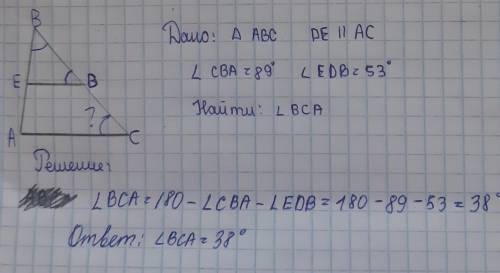 B
E
B
A
?
C
Дано: Δ ABC DE || AC
∠ CBA = 89° ∠ EDB = 53°
Найти: ∠ BCA
Решение:
∠BCA = 180 - ∠CBA - ∠EDB = 180 - 89 - 53 = 38°
Ответ: ∠BCA = 38°